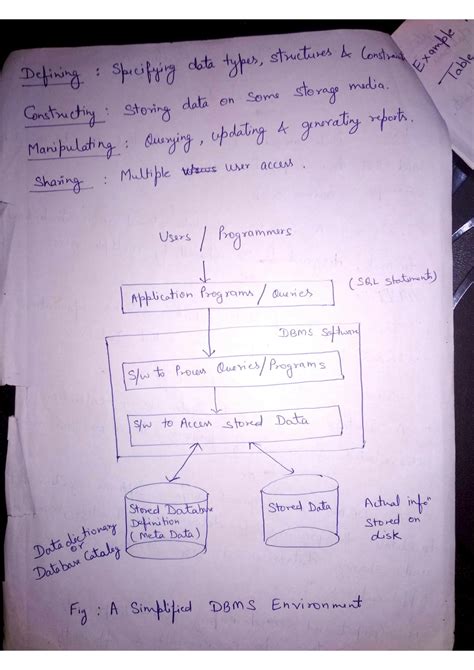 Defining : Specifying data types, structures & Constraints
Constructing : Storing data on Some storage media.
Manipulating : Querying, updating & generating reports.
Sharing : Multiple user access.
Example
Table
Users / Programmers
Application Programs / Queries
(SQL Statements)
DBMS Software
S/w to Process Queries/Programs
S/w to Access Stored Data
Stored Database
Definition
(Meta Data)
Stored Data
Actual infoⁿ
Stored on
disk
Data dictionary
or
Database Catalog
Fig : A Simplified DBMS Environment